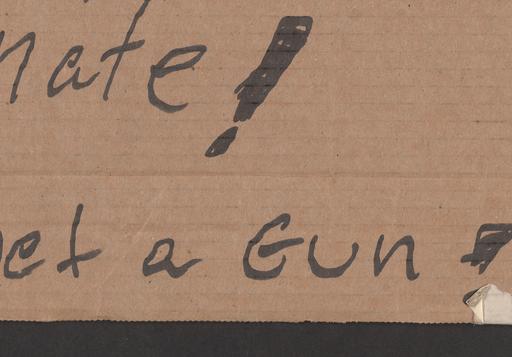 nate!
et a Gun!